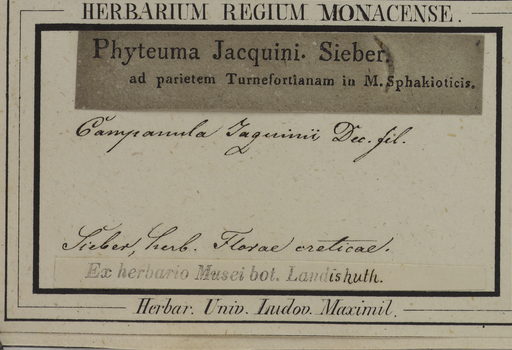 HERBARIUM REGIUM MONACENSE.
Phyteuma Jacquini. Sieber.
ad parietem Turnefortianam in M. Sphakioticis.
Campanula Jaquinii Dec. fil.
Sieber, herb. Florae creticae.
Ex herbario Musei bot. Landishuth.
Herbar. Univ. Ludov. Maximil.